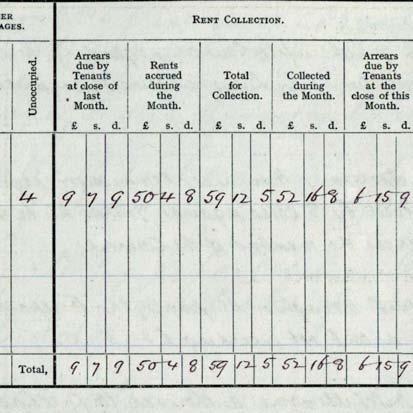 ER
AGES.
RENT COLLECTION.
Unoccupied.
Arrears due by Tenants at close of last Month.
Rents accrued during the Month.
Total for Collection.
Collected during the Month.
Arrears due by Tenants at the close of this Month.
£ s. d. £ s. d. £ s. d. £ s. d. £ s. d.
4 9 7 9 50 4 8 59 12 5 52 16 8 6 15 9
Total, 9 7 9 50 4 8 59 12 5 52 16 8 6 15 9